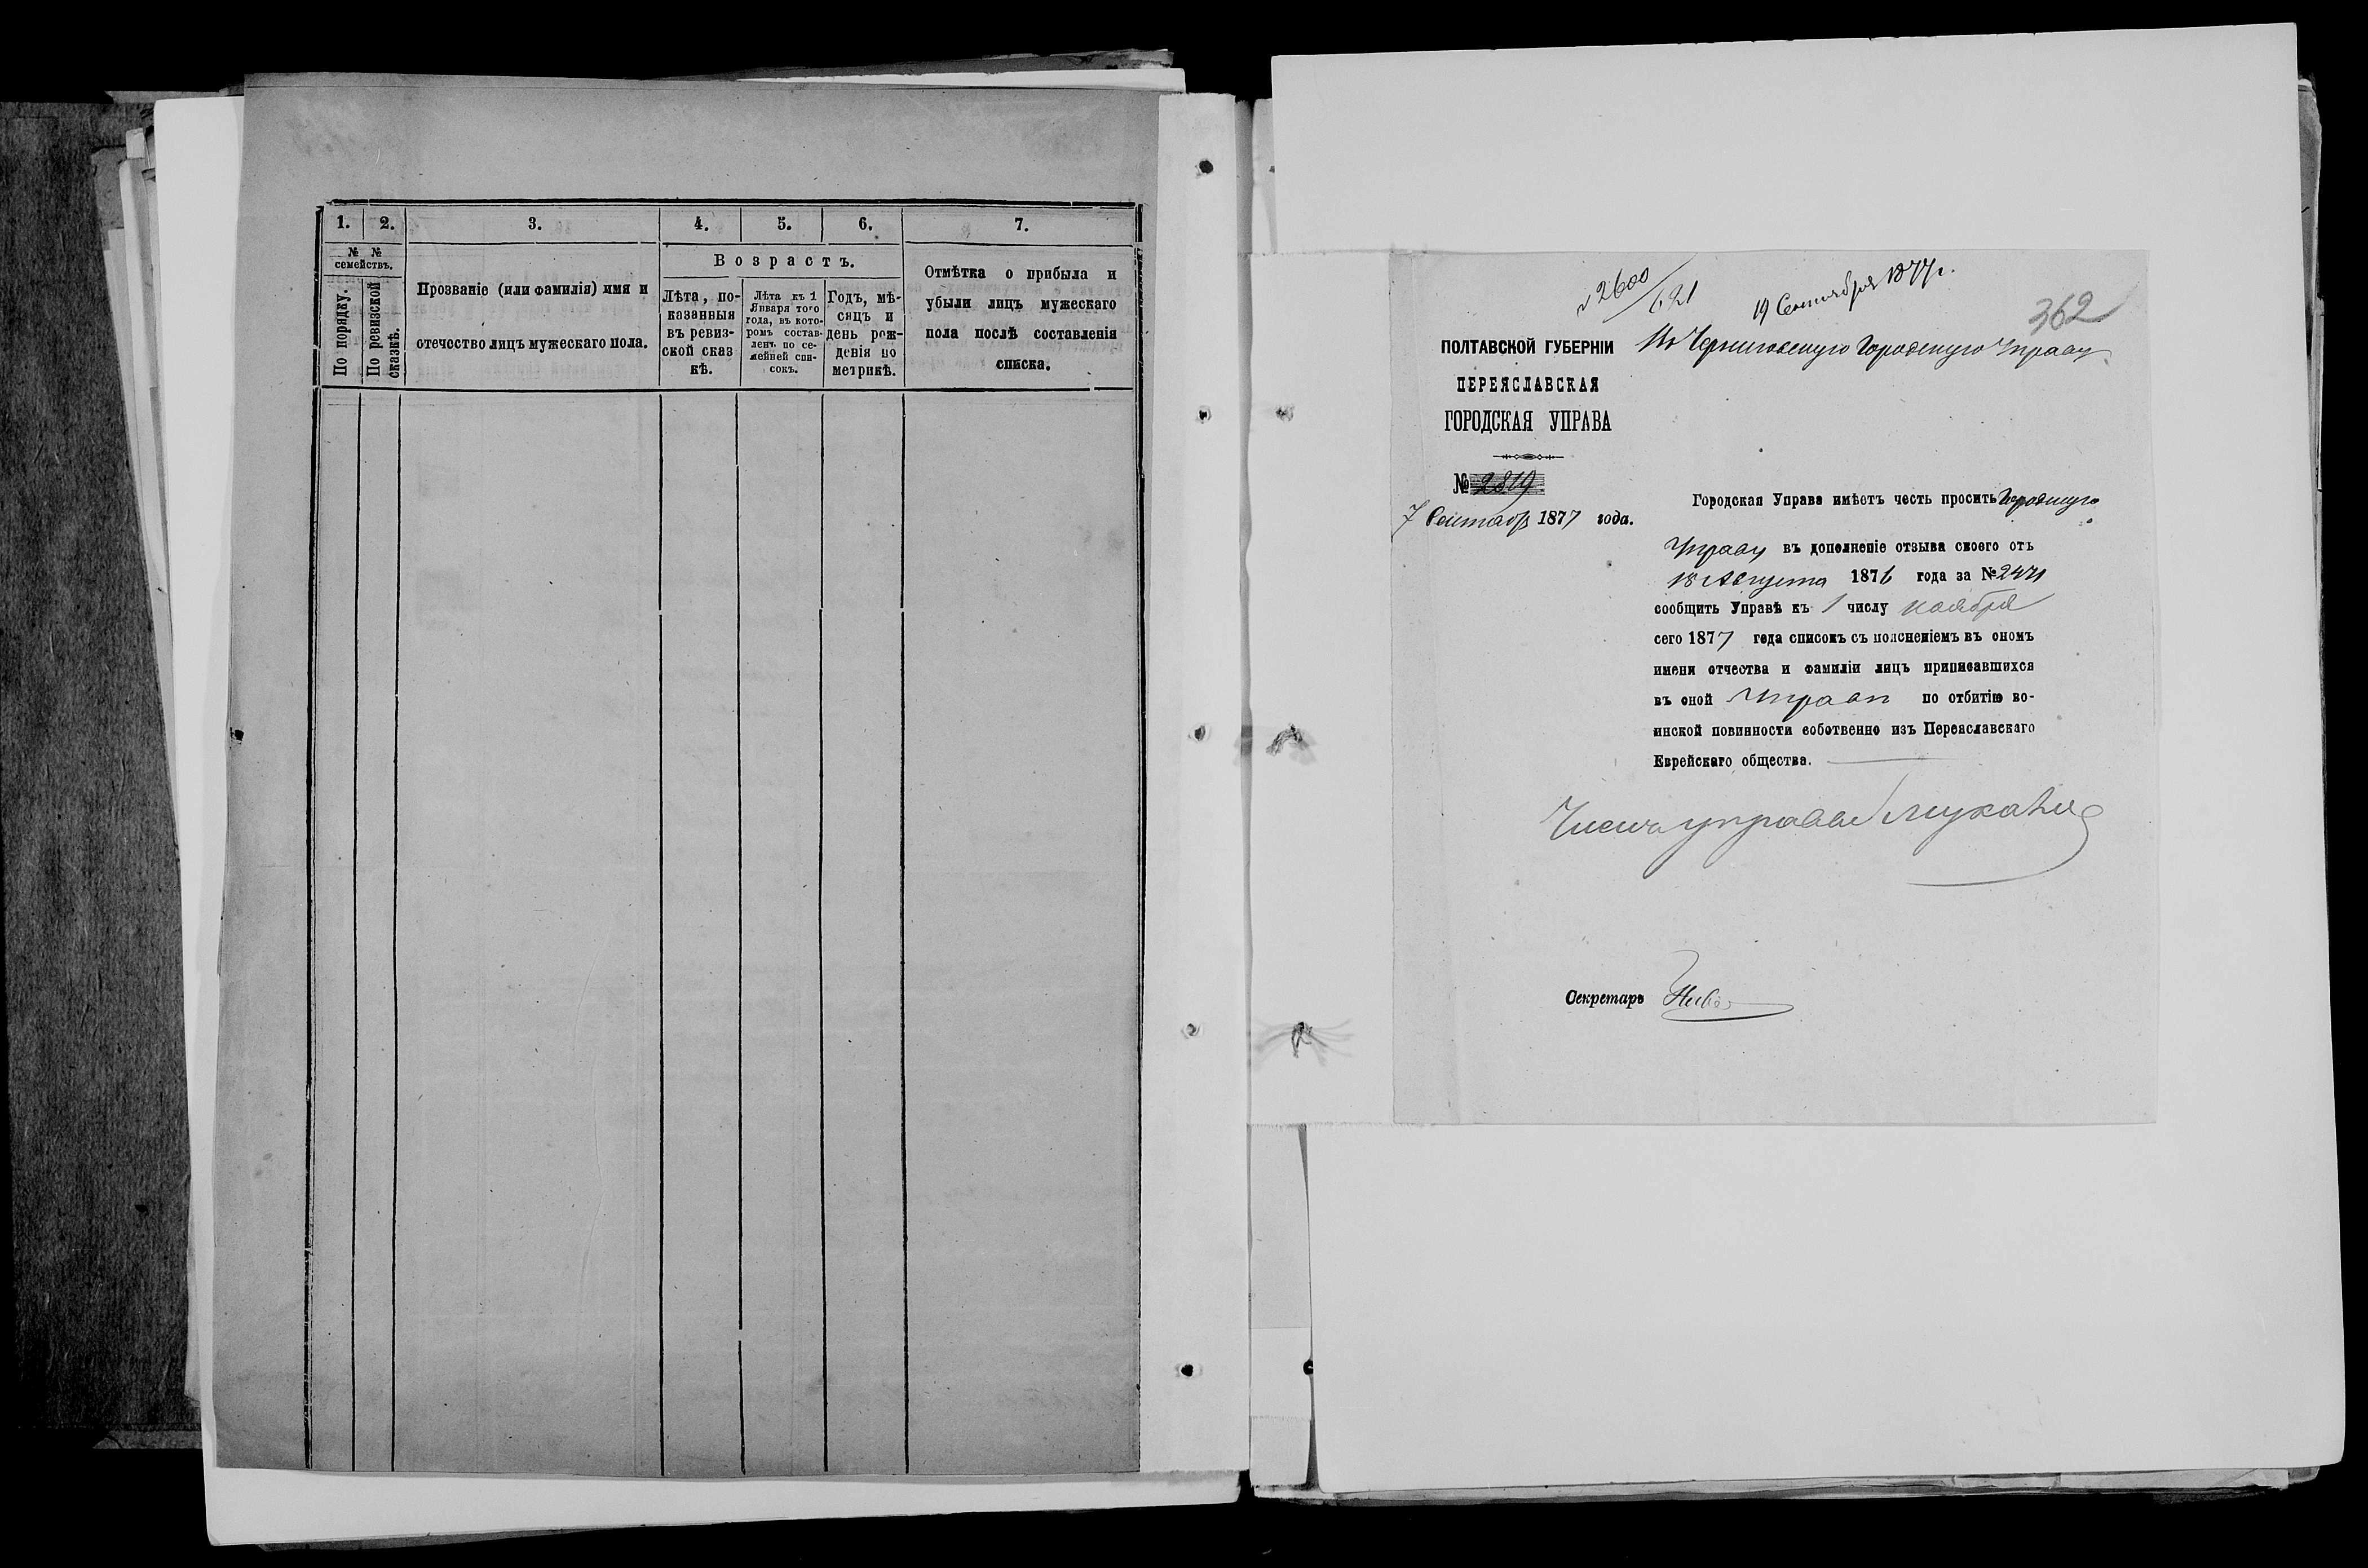 1. 2. 3. 4. 5. 6. 7.
№ №
семействъ.
По порядку.
По ревизской
сказкѣ.
Прозваніе (или фамилія) имя и
отчество лицъ мужескаго пола.
Возрастъ.
Лѣта, по-
казанныя
въ ревиз-
ской сказ
кѣ.
Лѣта къ 1
Января того
года, въ кото-
ромъ состав-
ленъ по се-
мейней спи-
сокъ.
Годъ, мѣ-
сяцъ и
день рож-
денія по
метрикѣ.
Отмѣтка о прибыла и
убыли лицъ мужескаго
пола послѣ составленія
списка.
2600/621
19 Сентября 1877 г.
362
ПОЛТАВСКОЙ ГУБЕРНІИ
ПЕРЕЯСЛАВСКАЯ
ГОРОДСКАЯ УПРАВА
№ 2819
7 Сентябр 1877 года.
Въ Черниговскую Городскую Управу
Городская Управа имѣетъ честь просить Городскую
Управу въ дополненіе отзыва своего отъ
18 Августа 1876 года за №
сообщить Управѣ къ 1 числу ноября
сего 1877 года списокъ съ поясненіемъ въ ономъ
имени отчества и фамиліи лицъ приписавшихся
въ оной Управѣ по отбитію во-
инской повинности собственно изъ Переяславскаго
Еврейскаго общества.
Членъ управы
Секретарь